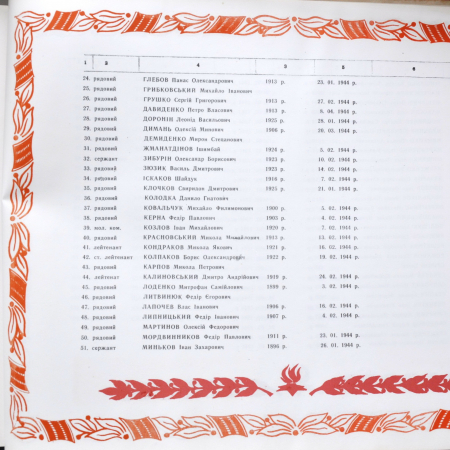 1 2 4 3 5 6
24. рядовий ГЛЕБОВ Панас Олександрович 1913 р. 25. 01. 1944 р.
25. рядовий ГРИБКОВСЬКИЙ Михайло Іванович
26. рядовий ГРУШКО Сергій Григорович 1912 р. 27. 02. 1944 р.
27. рядовий ДАВИДЕНКО Петро Власович 1913 р. 8. 04. 1944 р.
28. рядовий ДОРОНІН Леонід Васильович 1925 р. 28. 01. 1944 р.
29. рядовий ДИМАНЬ Олексій Минович 1906 р. 20. 03. 1944 р.
30. рядовий ДЕМИДЕНКО Мирон Степанович
31. рядовий ЖМАНАТДІНОВ Ішимбай 1924 р. 5. 02. 1944 р.
32. сержант ЗИБУРІН Олександр Борисович 1923 р. 10. 02. 1944 р.
33. рядовий ЗЮЗИК Василь Дмитрович 1923 р. 14. 02. 1944 р.
34. рядовий ІСКАКОВ Шайдук 1918 р. 7. 02. 1944 р.
35. рядовий КЛОЧКОВ Свиридон Дмитрович 1925 р. 21. 01. 1944 р.
36. рядовий КОЛОДКА Данило Гнатович
37. рядовий КОВАЛЬЧУК Михайло Филимонович 1900 р. 5. 02. 1944 р.
38. рядовий КЕРНА Федір Павлович 1903 р. 4. 02. 1944 р.
39. мол. ком. КОЗЛОВ Іван Михайлович 1920 р. 7. 02. 1944 р.
40. рядовий КРАСНОВСЬКИЙ Микола Михайлович 1913 р. 13. 02. 1944 р.
41. лейтенант КОНДРАКОВ Микола Якович 1921 р. 16. 02. 1944 р.
42. ст. лейтенант КОЛПАКОВ Борис Олександрович 1922 р. 19. 02. 1944 р.
43. рядовий КАРПОВ Микола Петрович
44. лейтенант КАЛИНОВСЬКИЙ Дмитро Андрійович 1919 р. 24. 02. 1944 р.
45. рядовий ЛОДЕНКО Митрофан Самійлович 1899 р. 5. 02. 1944 р.
46. рядовий ЛИТВИНЮК Федір Єгорович
47. рядовий ЛАПОЧЕВ Влас Іванович 1906 р. 16. 02. 1944 р.
48. рядовий ЛИПНИЦЬКИЙ Федір Іванович 1907 р. 4. 02. 1944 р.
49. рядовий МАРТИНОВ Олексій Федорович
50. рядовий МОРДВИННИКОВ Федір Павлович 1911 р. 23. 01. 1944 р.
51. сержант МИНЬКОВ Іван Захарович 26. 01. 1944 р.